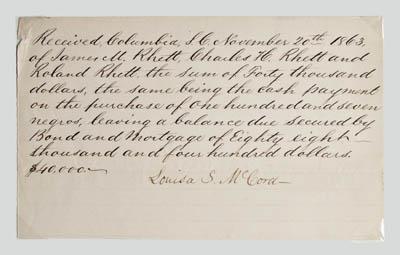 Received, Columbia, S.C. November 20th 1863,
of James M. Rhett, Charles H. Rhett and
Roland Rhett, the sum of Forty thousand
dollars, the same being the cash payment
on the purchase of One hundred and seven
negros, leaving a balance due secured by
Bond and Mortgage of Eighty eight
thousand and four hundred dollars.
$40,000.—
Louisa S. McCord—